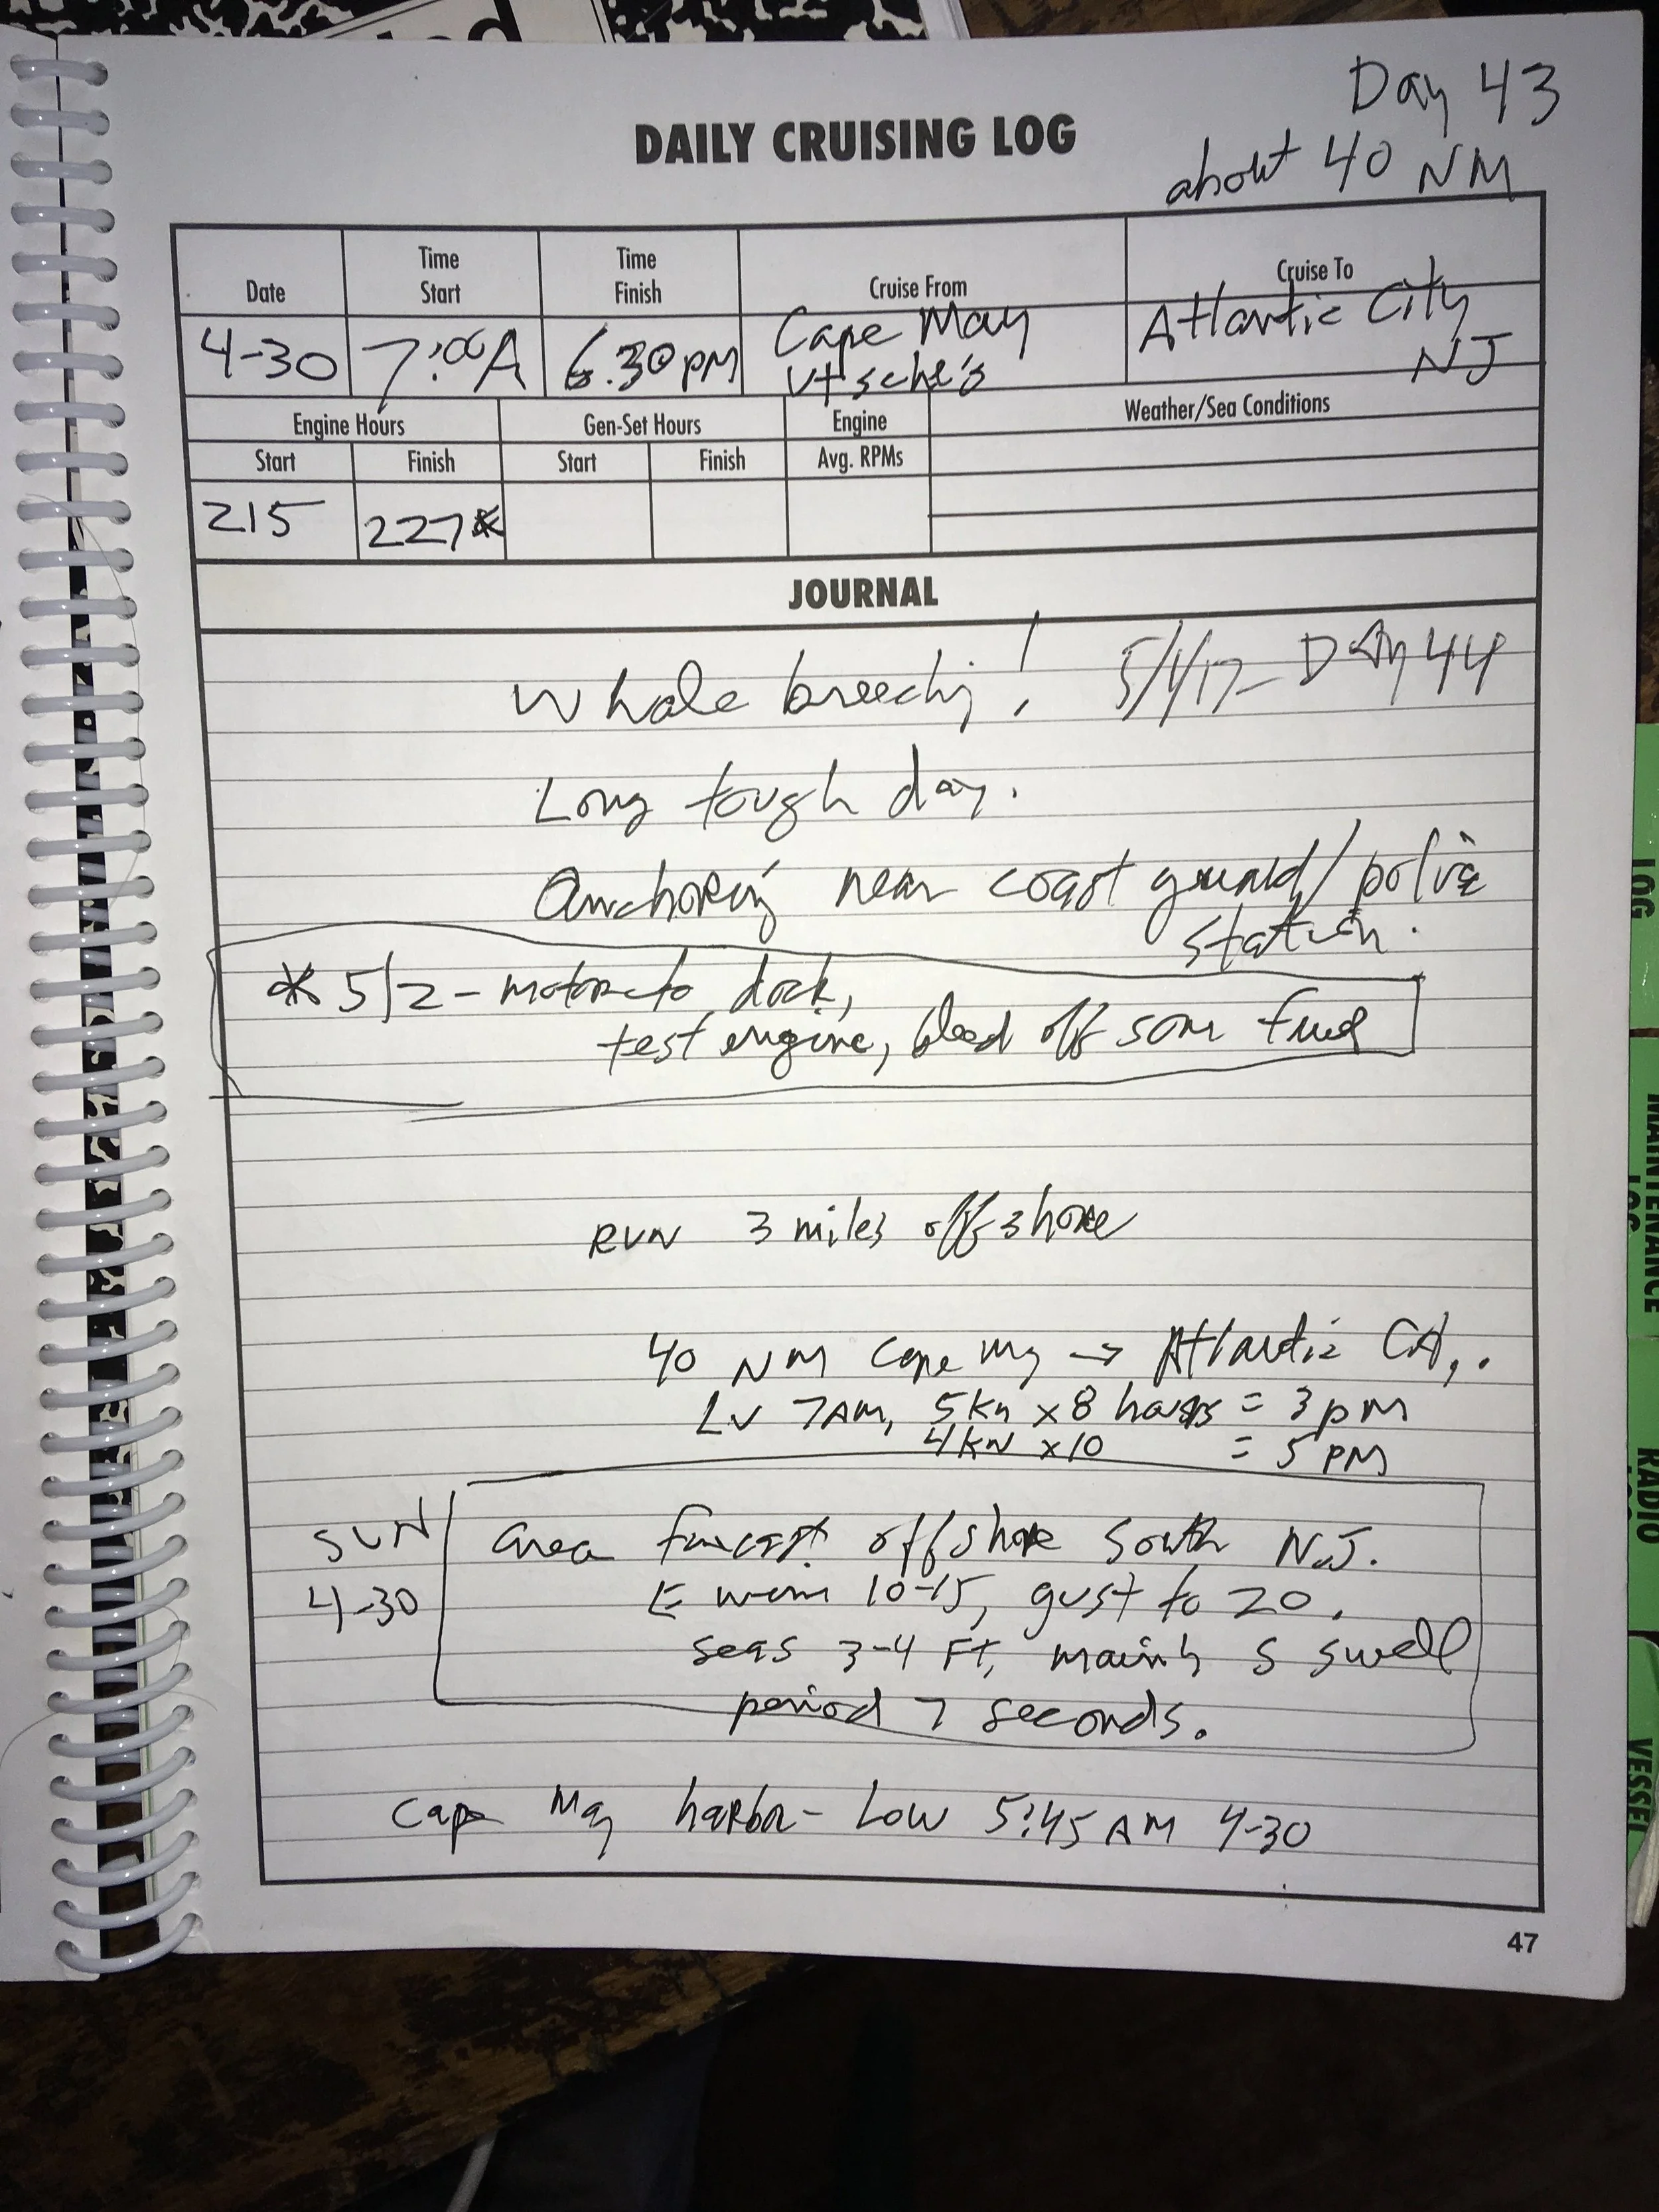 Day 43
DAILY CRUISING LOG
about 40 NM
Date
Time Start
Time Finish
Cruise From
Cruise To
4-30
7:00A
6:30pm
Cape May
Utsche's
Atlantic City
NJ
Engine Hours
Gen-Set Hours
Engine
Weather/Sea Conditions
Start
Finish
Start
Finish
Avg. RPMs
215
227*
JOURNAL
Whale breeching! 5/1/17- DAy 44
Long tough day.
Anchoring near coast guard/police
station.
* 5/2 - motor to dock,
test engine, bleed off some fuel
RUN 3 miles offshore
40 NM Cape May → Atlantic City.
Lv 7AM, 5kn x 8 hours = 3pm
4KN x10 = 5 PM
SUN
4-30
area forecast offshore South N.J.
E winn 10-15, gust to 20.
seas 3-4 FT, mainly S swell
period 7 seconds.
Cape May harbor- Low 5:45 AM 4-30
47
LOG
MAINTENANCE LOG
RADIO
VESSEL